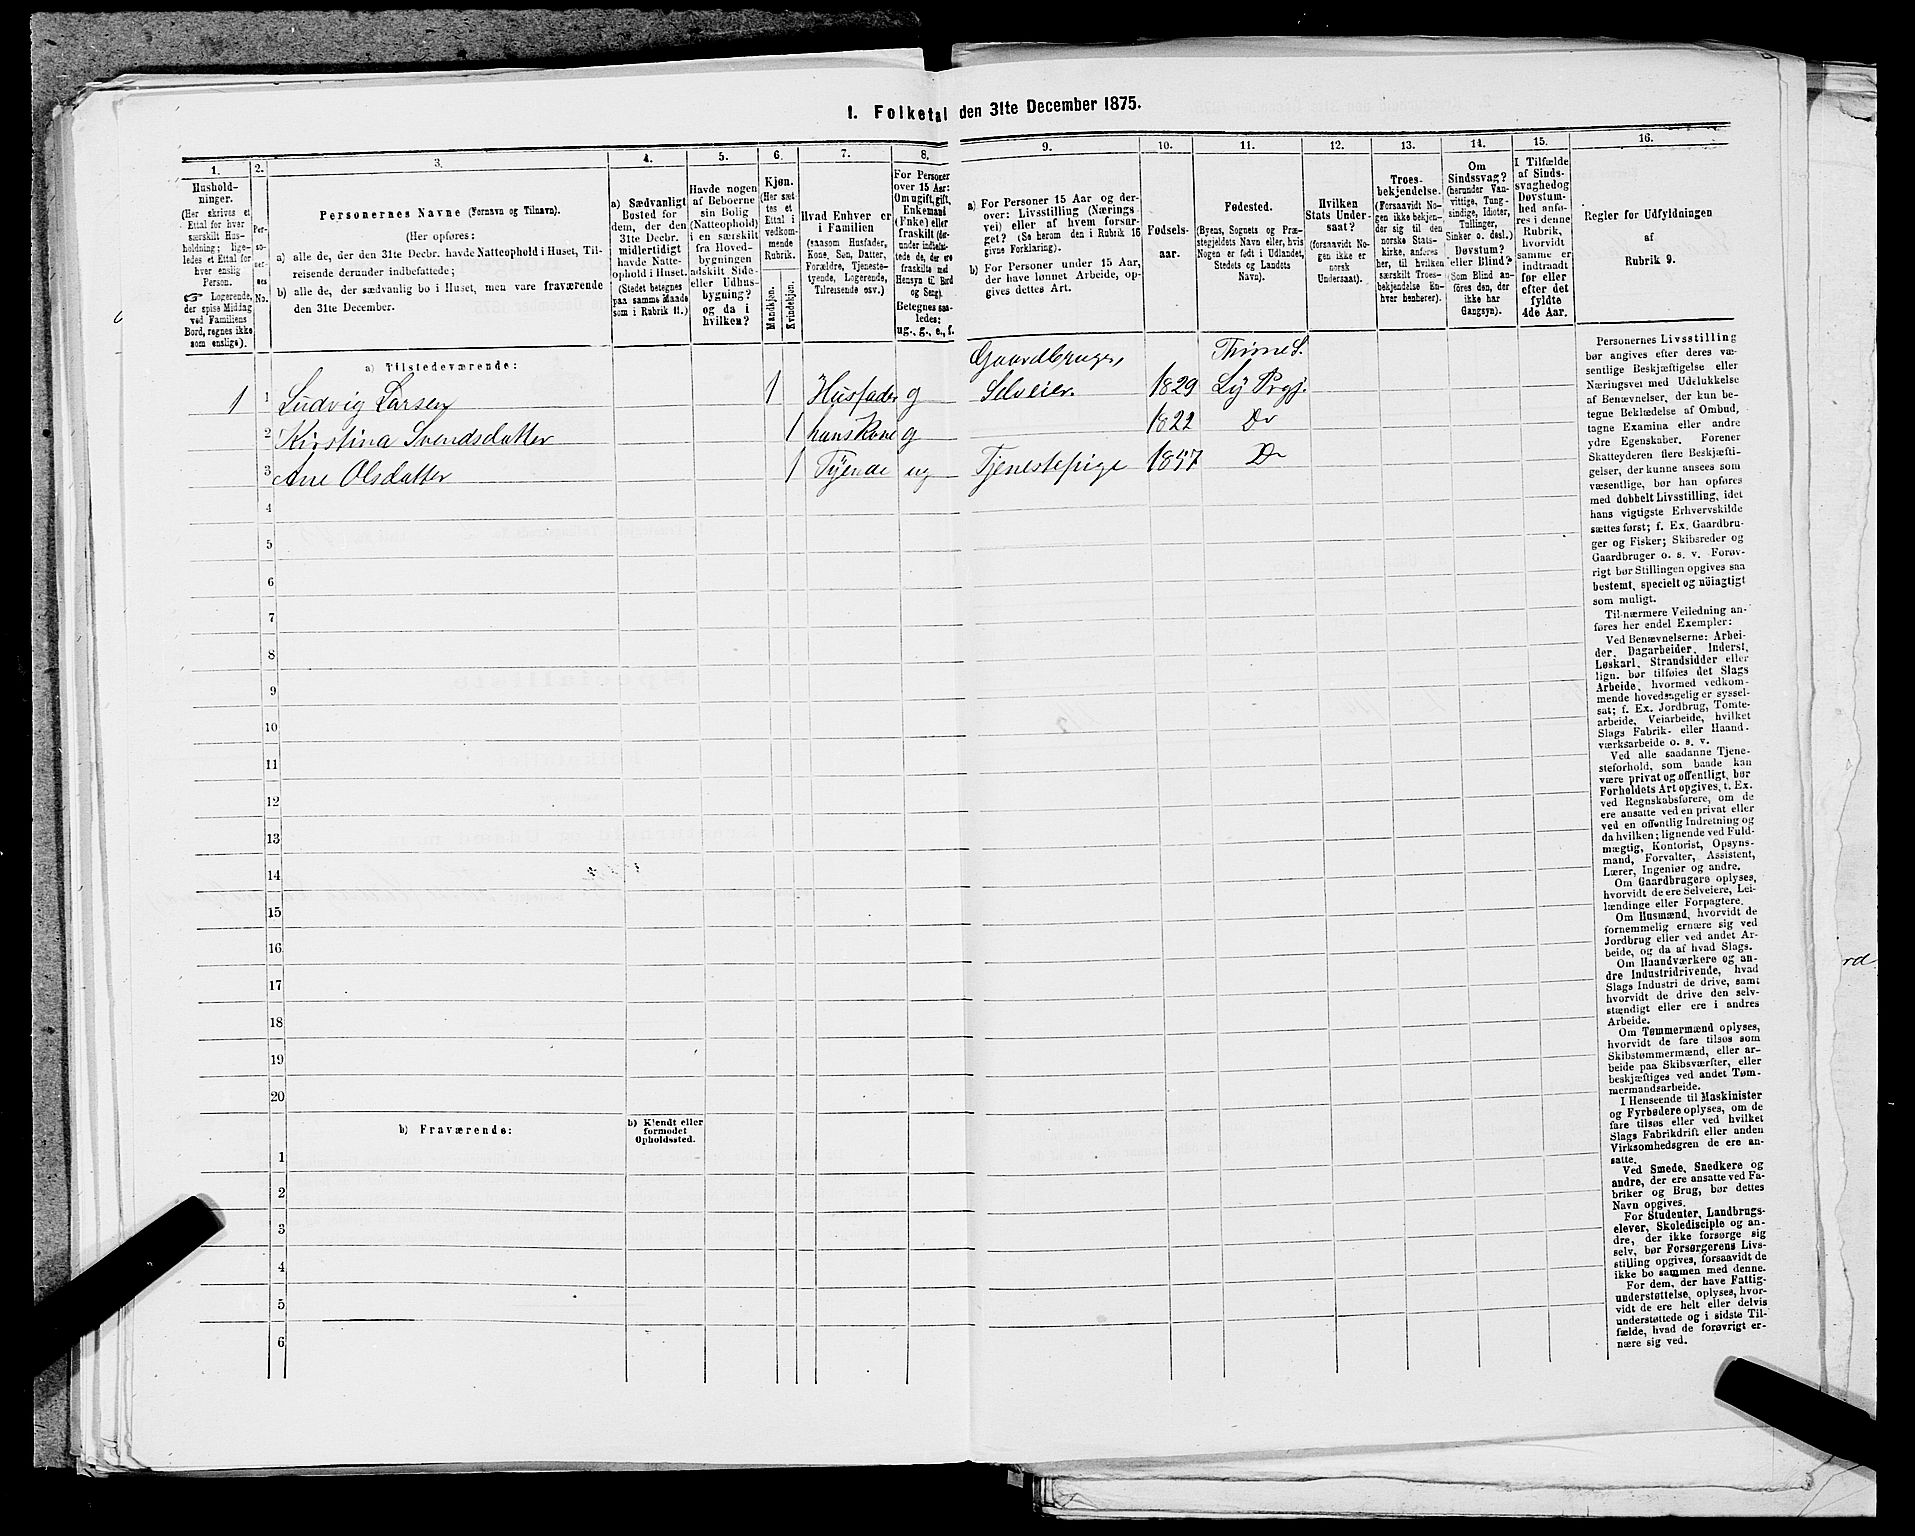 1. Folketal den 31te December 1875.
1. 2. 3. 4. 5. 6. 7. 8. 9. 10. 11. 12. 13. 14. 15. 16.
Hushold-
ninger.
(Her skrives et
Ettal for hver
særskilt Hus-
holdning; lige-
ledes et Ettal for
hver enslig
Person.
☞ Logerende,
der spise Middag
ved Familiens
Bord, regnes ikke
som enslige).
Per-
so-
ner-
nes
No.
Personernes Navne (Fornavn og Tilnavn).
(Her opføres:
a) alle de, der den 31te Decbr. havde Natteophold i Huset, Til-
reisende derunder indbefattede;
b) alle de, der sædvanlig bo i Huset, men vare fraværende
den 31te December.
a) Sædvanligt
Bosted for
dem, der den
31te Decbr.
midlertidigt
havde Natte-
ophold i Huset.
(Stedet betegnes
paa samme Maade
som i Rubrik 11.)
Havde nogen
af Beboerne
sin Bolig
(Natteophold)
i en særskilt
fra Hoved-
bygningen
adskilt Side-
eller Udhus-
bygning?
og da i
hvilken?
Kjøn.
(Her sæt-
tes et
Ettal i
vedkom-
mende
Rubrik.)
Mandkjøn.
Kvindekjøn.
Hvad Enhver er
i Familien
(saasom Husfader,
Kone, Søn, Datter,
Forældre, Tjeneste-
tyende, Logerende,
Tilreisende osv.)
For Personer
over 15 Aar:
Om ugift, gift,
Enkemand
(Enke) eller
fraskilt (der-
under indbefat-
tede de, der ere
fraskilte med
Hensyn til Bord
og Seng).
Betegnes saa-
ledes:
ug., g., e., f.
a) For Personer 15 Aar og der-
over: Livsstilling (Nærings
vei) eller af hvem forsør-
get? (Se herom den i Rubrik 16
givne Forklaring).
b) For Personer under 15 Aar,
der have lønnet Arbeide, op-
gives dettes Art.
Fødsels-
aar.
Fødested.
(Byens, Sognets og Præ-
stegjeldets Navn eller, hvis
Nogen er født i Udlandet,
Stedets og Landets
Navn).
Hvilken
Stats Under-
saat?
(forsaavidt No-
gen ikke er
norsk
Undersaat).
Troes-
bekjendelse.
(Forsaavidt No-
gen ikke bekjen-
der sig til den
norske Stats-
kirke, anføres
her, til hvilken
særskilt Troes-
bekjendelse En-
hver henhører).
Om
Sindssvag?
(herunder Van-
vittige, Tung-
sindige, Idioter,
Tullinger,
Sinker o. desl.)
Døvstum?
eller Blind?
(Som Blind an-
føres den, der
ikke har
Gangsyn).
I Tilfælde
af Sinds-
svaghed og
Døvstum-
hed anfø-
res i denne
Rubrik,
hvorvidt
samme er
indtraadt
før eller
efter det
fyldte
4de Aar.
Regler for Udfyldningen
af
Rubrik 9.
a) Tilstedeværende:
1 1 Ludvig Larsen 1 Husfader g Gaardbruger, Selveier. 1829 Thime S. Ly Prgj.
2 Kirstina Svendsdatter 1 hans Kone g 1822 Do
3 Ane Olsdatter 1 Tyende ug Tjenestepige 1857 Do
4
5
6
7
8
9
10
11
12
13
14
15
16
17
18
19
20
b) Fraværende:
b) Kjendt eller
formodet
Opholdssted.
1
2
3
4
5
6
Personernes Livsstilling
bør angives efter deres væ-
sentlige Beskjæftigelse eller
Næringsvei med Udelukkelse
af Benævnelser, der kun be-
tegne Beklædelse af Ombud,
tagne Examina eller andre
ydre Egenskaber. Forener
Skatteyderen flere Beskjæfti-
gelser, der kunne ansees som
væsentlige, bør han opføres
med dobbelt Livsstilling, idet
hans vigtigste Erhvervskilde
sættes først; f. Ex. Gaardbru-
ger og Fisker; Skibsreder og
Gaardbruger o. s. v. Forøv-
rigt bør Stillingen opgives saa
bestemt, specielt og nöiagtigt
som muligt.
Til nærmere Veiledning an-
føres her endel Exempler:
Ved Benævnelserne: Arbei-
der, Dagarbeider, Inderst,
Løskarl, Strandsidder eller
lign. bør tilføies det Slags
Arbeide, hvormed vedkom-
mende hovedsagelig er syssel-
sat; f. Ex. Jordbrug, Tomte-
arbeide, Veiarbeide, hvilket
Slags Fabrik- eller Haand-
værksarbeide o. s. v.
Ved alle saadanne Tjene-
steforhold, som baade kan
være privat og offentligt, bør
Forholdets Art opgives, t. Ex.
ved Regnskabsførere, om de
ere ansatte ved en privat eller
ved en offentlig Indretning og
da hvilken; lignende ved Fuld-
mægtig, Kontorist, Opsyns-
mand, Forvalter, Assistent,
Lærer, Ingeniør og andre.
Om Gaardbrugere oplyses,
hvorvidt de ere Selveiere, Lei-
lændinge eller Forpagtere.
Om Husmænd, hvorvidt de
fornemmelig ernære sig ved
Jordbrug eller ved andet Ar-
beide, og da af hvad Slags.
Om Haandværkere og an-
dre Industridrivende, hvad
Slags Industri de drive, samt
hvorvidt de drive den selv-
stændigt eller ere i andres
Arbeide.
Om Tømmermænd oplyses,
hvorvidt de fare tilsøs som
Skibstømmermænd, eller ar-
beide paa Skibsværfter, eller
beskjæftiges ved andet Tøm-
mermandsarbeide.
I Henseende til Maskinister
og Fyrbødere oplyses, om de
fare tilsøs eller ved hvilket
Slags Fabrikdrift eller anden
Virksomhedsgren de ere an-
satte.
Ved Smede, Snedkere og
andre, der ere ansatte ved Fa-
briker og Brug, bør dettes
Navn opgives.
For Studenter, Landbrugs-
elever, Skoledisciple og an-
dre, der ikke forsørge sig
selv, bør Forsørgerens Livs-
stilling opgives, forsaavidt de
ikke bo sammen med denne.
For dem, der have Fattig-
understøttelse, oplyses, hvor-
vidt de ere helt eller delvis
understøttede og i sidste Til-
fælde, hvad de forøvrigt er-
nære sig ved.